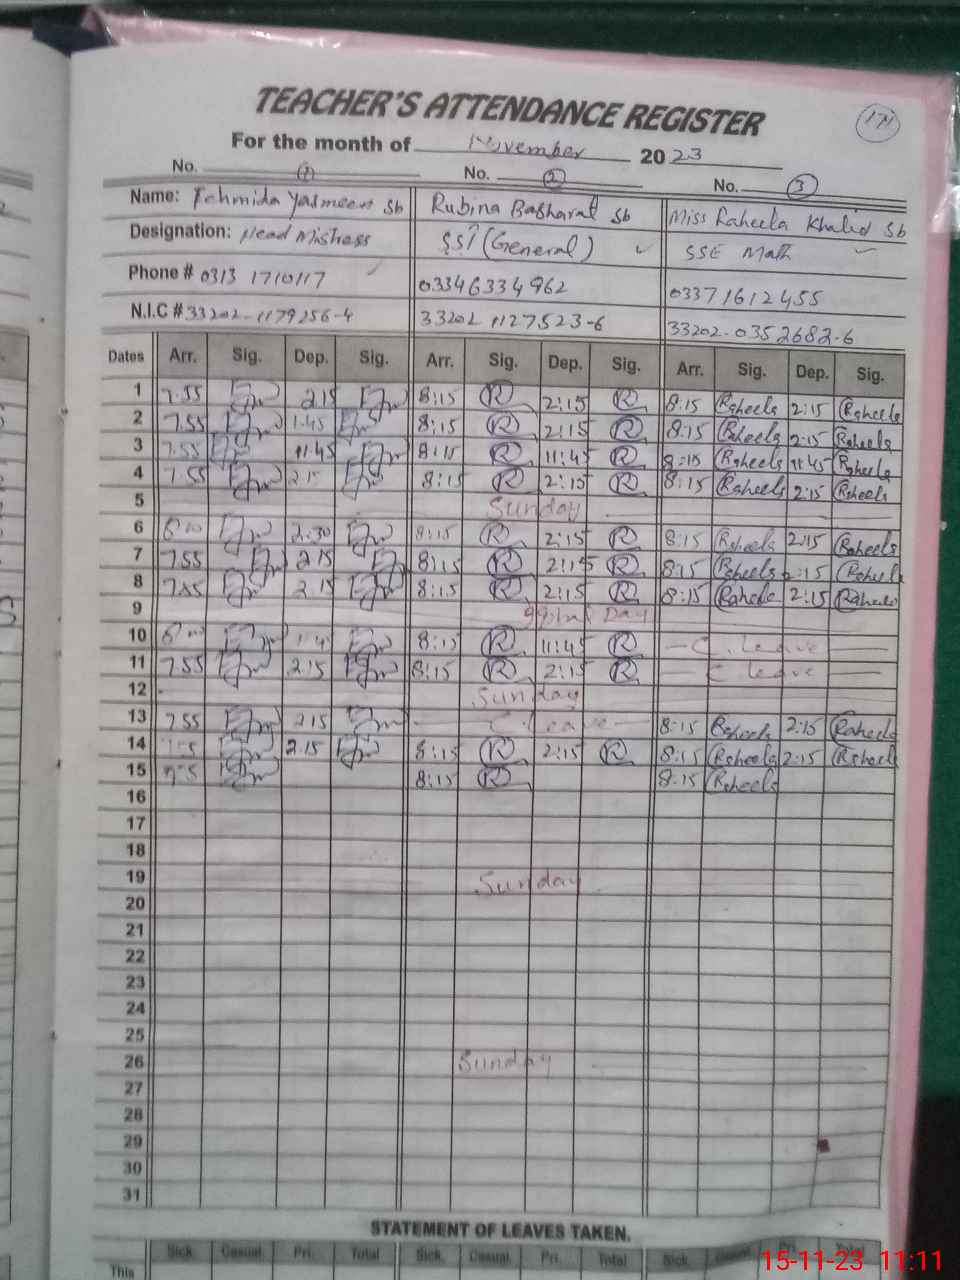 TEACHER'S ATTENDANCE REGISTER
171
For the month of November 2023
No. 1 No. 2 No. 3
Name: Tehmida Yasmeen Sb Rubina Basharat Sb Miss Raheela Khalid Sb
Designation: Head Mistress SST (General) SSE Math
Phone # 0313 1710117 03346334962 03371612455
N.I.C # 33202-1179256-4 33202 1127523-6 33202-0352682-6
Dates Arr. Sig. Dep. Sig. Arr. Sig. Dep. Sig. Arr. Sig. Dep. Sig.
1 7.55 2.15 8:15 R 2:15 R 8:15 Raheela 2:15 Raheela
2 7.55 1.45 8:15 R 2:15 R 8:15 Raheela 2:15 Raheela
3 7.55 11.45 8:15 R 11:45 R 8:15 Raheela 11:45 Raheela
4 7.55 2.15 8:15 R 2:15 R 8:15 Raheela 2:15 Raheela
5 Sunday
6 8:00 2.30 8:15 R 2:15 R 8:15 Raheela 2:15 Raheela
7 7.55 2.15 8:15 R 2:15 R 8:15 Raheela 2:15 Raheela
8 7.55 2.15 8:15 R 2:15 R 8:15 Raheela 2:15 Raheela
9 Iqbal Day
10 8:15 R 11:45 R C. leave
11 7.55 2.15 8:15 R 2:15 R C leave
12 Sunday
13 7.55 2.15 C. leave 8:15 Raheela 2:15 Raheela
14 2.15 8:15 R 2:15 R 8:15 Raheela 2:15 Raheela
15 8:15 R 8:15 Raheela
16
17
18
19 Sunday
20
21
22
23
24
25
26 Sunday
27
28
29
30
31
STATEMENT OF LEAVES TAKEN.
Sick. Casual. Pri. Total Sick. Casual. Pri. Total Sick. Casual. Pri. Total
This
15-11-23 11:11